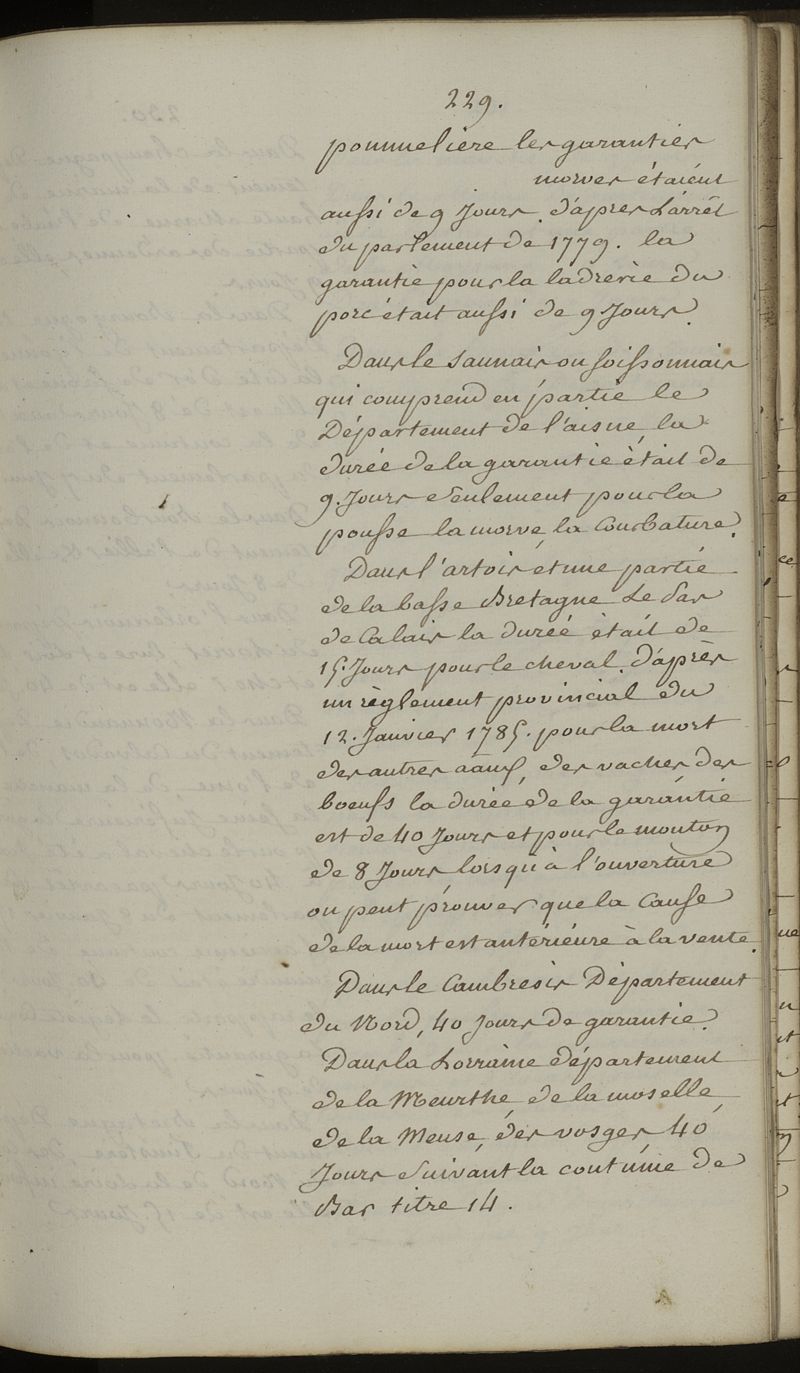 229.
pommeliere les garanties
morves étaient
aussi de 9 Jours d'après L'arrêt
du parlement de 1779. la
garantie pour la ladrerie du
porc était aussi de 9 Jours.
Dans le saunais ou soissonnais
qui comprend en partie le
Département de l'aisne, la
durée de la garantie était de
9. Jours Seulement pour la
pousse la morve, la Courbature.
Dans l'artois et une partie
de la basse Bretagne Le Pas
de Calais la durée était de
15. Jours pour le cheval, d'après
un règlement provincial du
12. Janvier 1785. pour la mort
des autres des vaches des
boeufs la durée de la garantie
est de 40 Jours et pour le mouton
de 8 Jours lorsqu'à l'ouverture
on peut prouver que la Cause
de la mort est antérieure à la vente.
Dans le Cambresis Département
du Nord, 40 Jours de garantie.
Dans la Lorraine département
de la Meurthe, de la moselle,
de la Meuse, des vosges 40
Jours Suivant la coutume de
Bar titre 14.